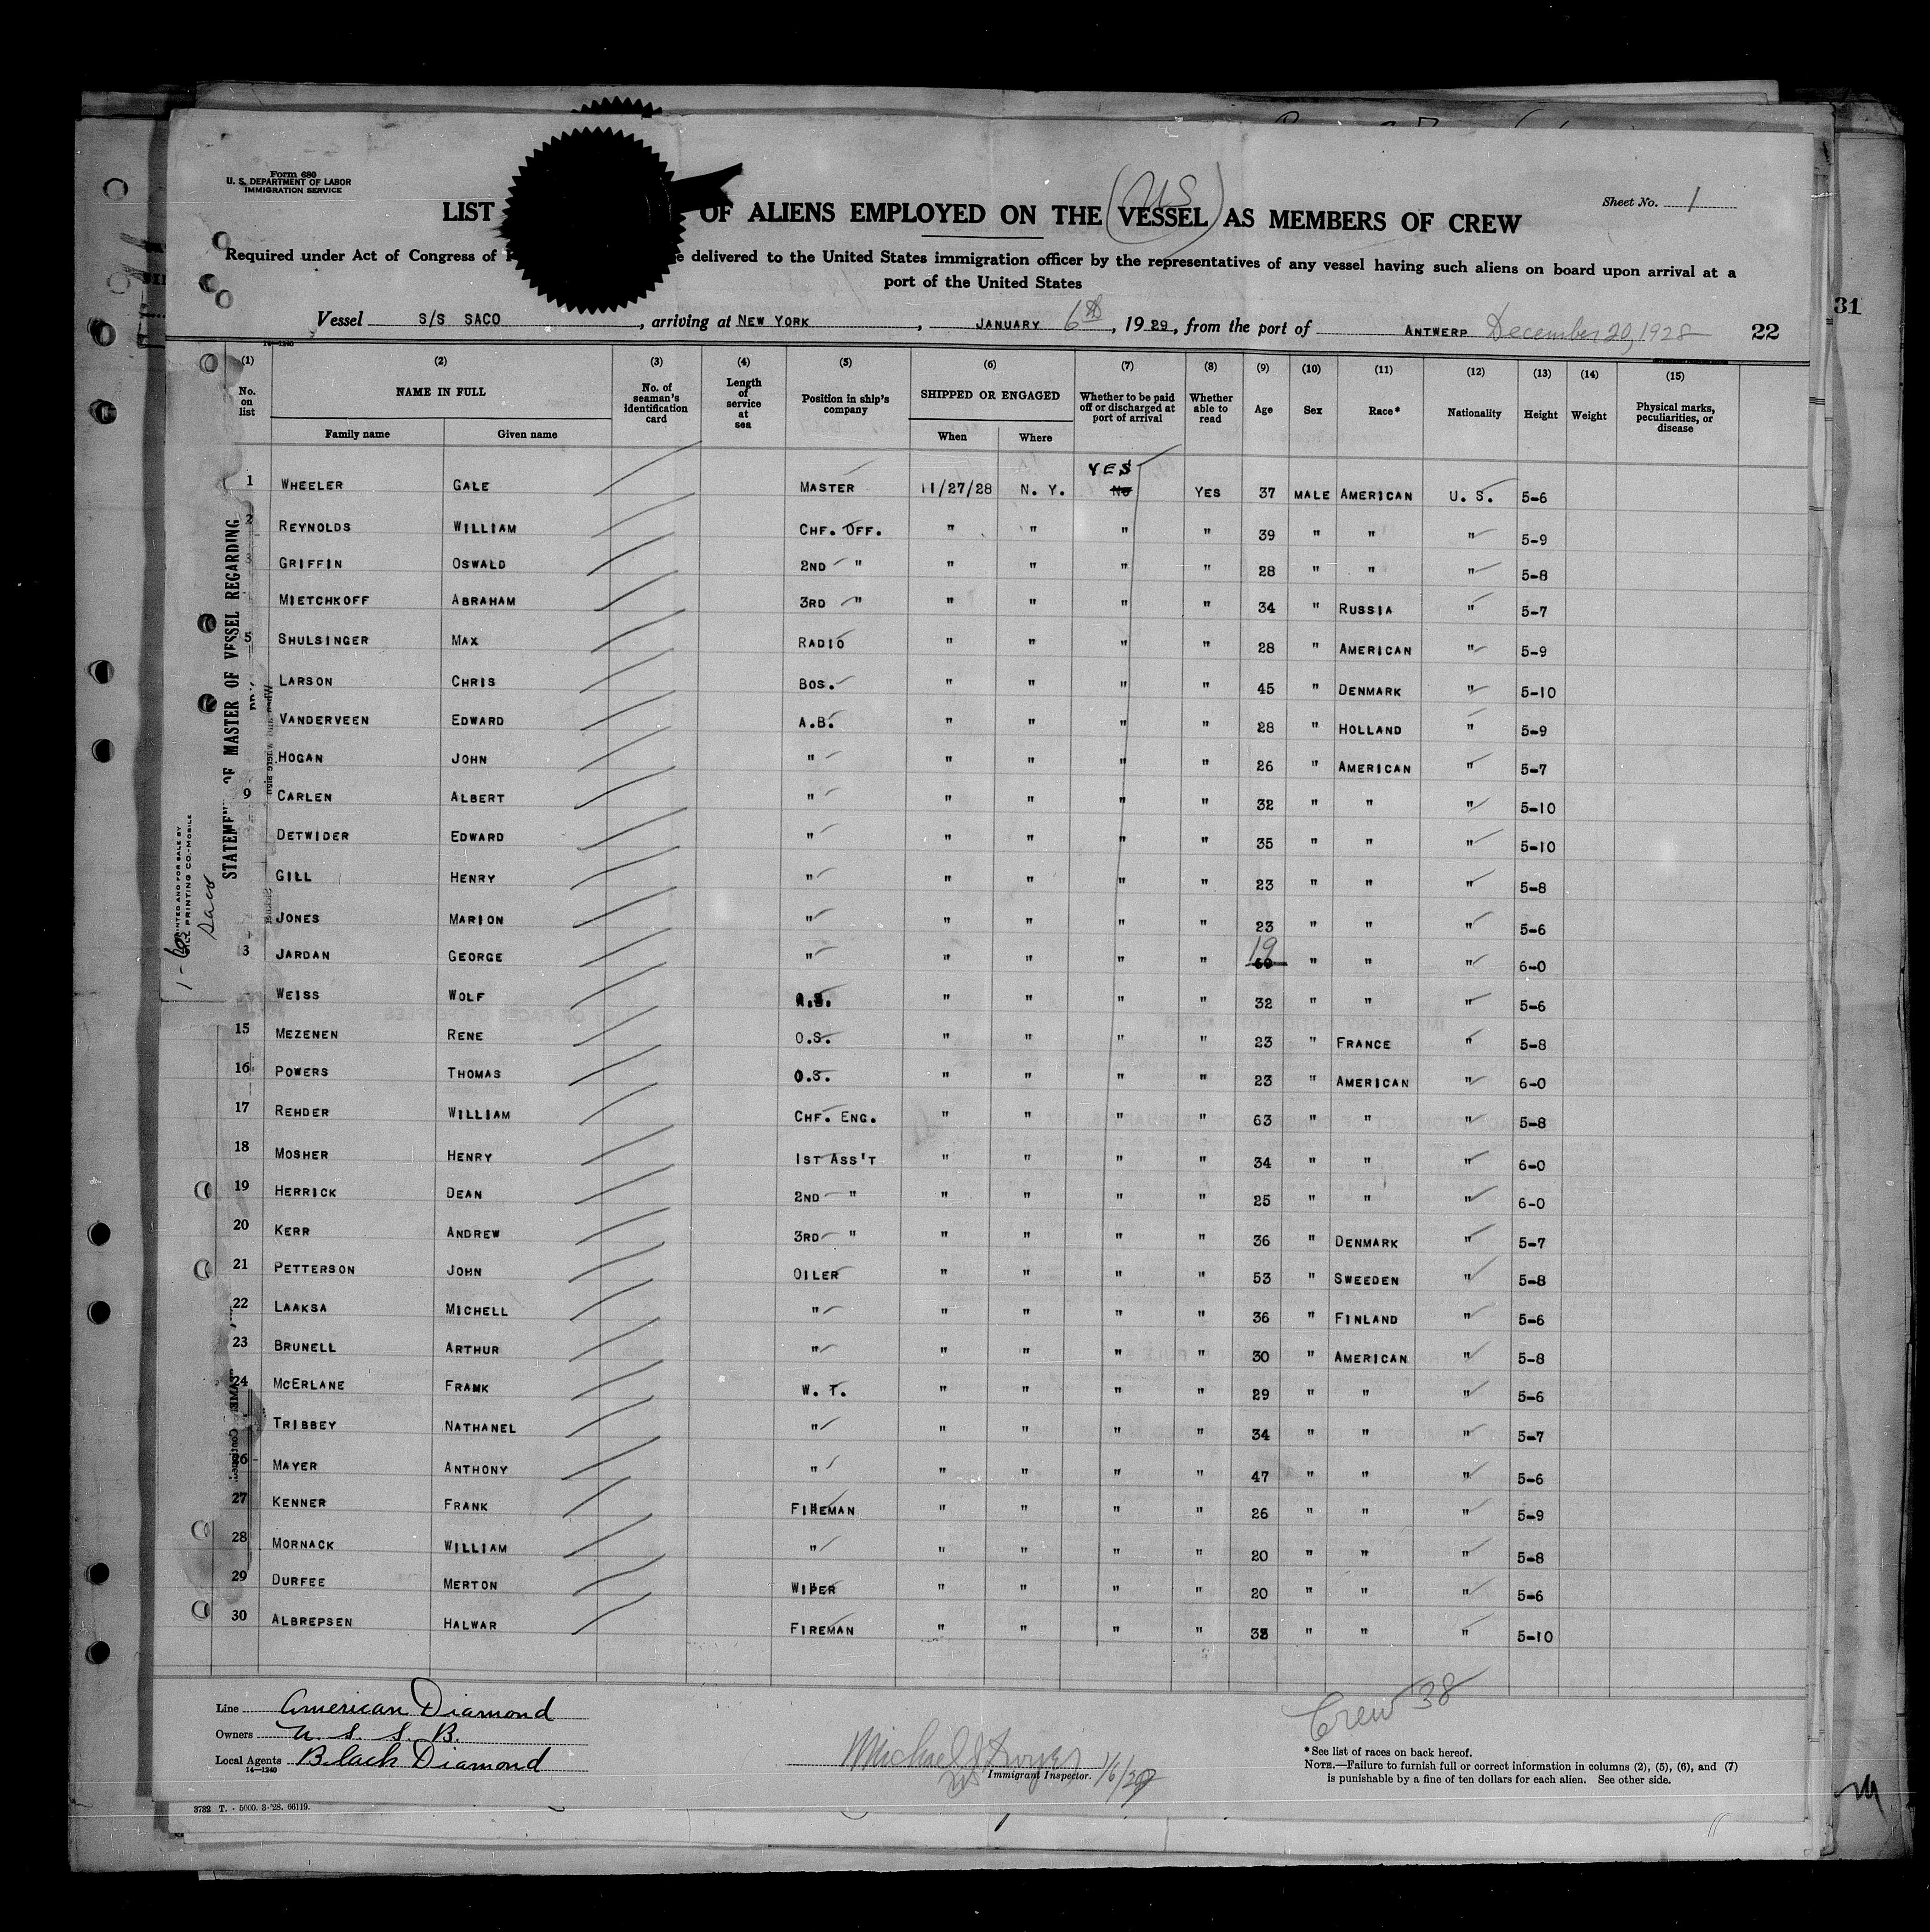 Form 680
U. S. DEPARTMENT OF LABOR
IMMIGRATION SERVICE
Sheet No. 1
(US)
LIST OF ALIENS EMPLOYED ON THE VESSEL AS MEMBERS OF CREW
Required under Act of Congress of delivered to the United States immigration officer by the representatives of any vessel having such aliens on board upon arrival at a
port of the United States
Vessel S/S SACO, arriving at NEW YORK, JANUARY 6th, 1929, from the port of ANTWERP December 20, 1928
22
31
14—1240
(1) (2) (3) (4) (5) (6) (7) (8) (9) (10) (11) (12) (13) (14) (15)
No. on list NAME IN FULL No. of seaman's identification card Length of service at sea Position in ship's company SHIPPED OR ENGAGED Whether to be paid off or discharged at port of arrival Whether able to read Age Sex Race* Nationality Height Weight Physical marks, peculiarities, or disease
Family name Given name When Where
YES
1 WHEELER GALE MASTER 11/27/28 N. Y. No YES 37 MALE AMERICAN U. S. 5-6
2 REYNOLDS WILLIAM CHF. OFF. " " " " 39 " " " 5-9
3 GRIFFIN OSWALD 2ND " " " " " 28 " " " 5-8
MIETCHKOFF ABRAHAM 3RD " " " " " 34 " RUSSIA " 5-7
5 SHULSINGER MAX RADIO " " " " 28 " AMERICAN " 5-9
LARSON CHRIS BOS. " " " " 45 " DENMARK " 5-10
VANDERVEEN EDWARD A.B. " " " " 28 " HOLLAND " 5-9
HOGAN JOHN " " " " " 26 " AMERICAN " 5-7
9 CARLEN ALBERT " " " " " 32 " " " 5-10
DETWIDER EDWARD " " " " " 35 " " " 5-10
GILL HENRY " " " " " 23 " " " 5-8
JONES MARION " " " " " 23 " " " 5-6
3 JARDAN GEORGE " " " " " 19 " " " 6-0
WEISS WOLF " " " " 32 " " " 5-6
15 MEZENEN RENE O.S. " " " " 23 " FRANCE " 5-8
16 POWERS THOMAS O.S. " " " " 23 " AMERICAN " 6-0
17 REHDER WILLIAM CHF. ENG. " " " " 63 " " " 5-8
18 MOSHER HENRY 1ST ASS'T " " " " 34 " " " 6-0
19 HERRICK DEAN 2ND " " " " " 25 " " " 6-0
20 KERR ANDREW 3RD " " " " " 36 " DENMARK " 5-7
21 PETTERSON JOHN OILER " " " " 53 " SWEEDEN " 5-8
22 LAAKSA MICHELL " " " " " 36 " FINLAND " 5-6
23 BRUNELL ARTHUR " " " " " 30 " AMERICAN " 5-8
24 MCERLANE FRANK W. T. " " " " 29 " " " 5-6
TRIBBEY NATHANEL " " " " " 34 " " " 5-7
26 MAYER ANTHONY " " " " " 47 " " " 5-6
27 KENNER FRANK FIREMAN " " " " 26 " " " 5-9
28 MORNACK WILLIAM " " " " " 20 " " " 5-8
29 DURFEE MERTON WIPER " " " " 20 " " " 5-6
30 ALBREPSEN HALWAR FIREMAN " " " " " " " 5-10
STATEMENT OF MASTER OF VESSEL REGARDING
PRINTED AND FOR SALE BY
GILL PRINTING CO.-MOBILE
Saco
Line American Diamond
Owners U. S. S. B.
Local Agents Black Diamond
14—1240
Crew 38
Michael
Immigrant Inspector. 1/6/29
*See list of races on back hereof.
NOTE.—Failure to furnish full or correct information in columns (2), (5), (6), and (7)
is punishable by a fine of ten dollars for each alien. See other side.
3782 T. - 5000. 3-'28. 66119.